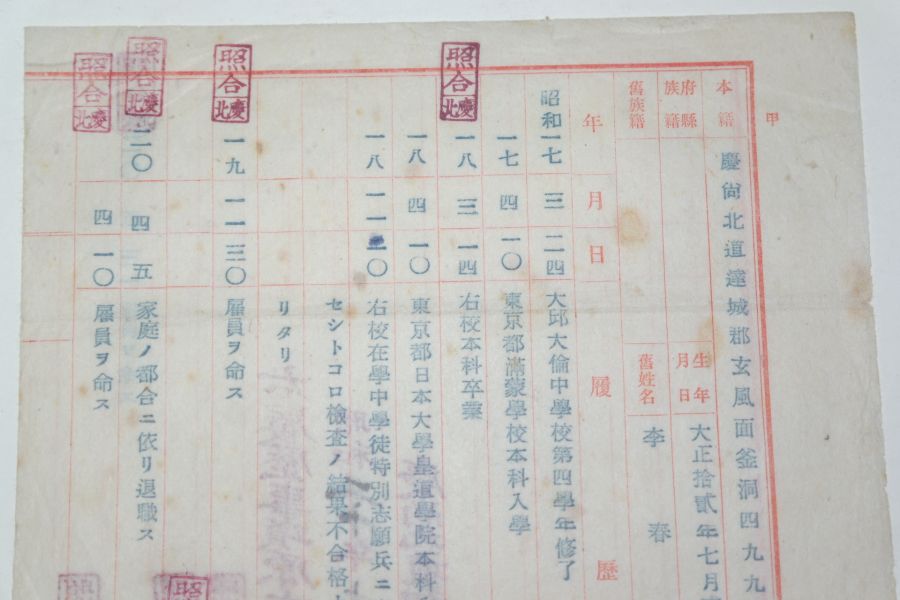 甲
本籍 慶尚北道達城郡玄風面釜洞四九九
府縣族籍 生年月日 大正拾貳年七月
舊族籍 舊姓名 李春
年 月 日 履歷
昭和一七 三 二四 大邱大倫中學校第四學年修了
一七 四 一〇 東京都滿蒙學校本科入學
照合 慶北
一八 三 一四 右校本科卒業
一八 四 一〇 東京都日本大學皇道學院本科
一八 一一 二〇 右校在學中學徒特別志願兵ニ
セシトコロ檢査ノ結果不合格
リタリ
照合 慶北
一九 一一 三〇 雇員ヲ命ス
照合 慶北
二〇 四 五 家庭ノ都合ニ依リ退職ス
照合 慶北
四 一〇 雇員ヲ命ス
照